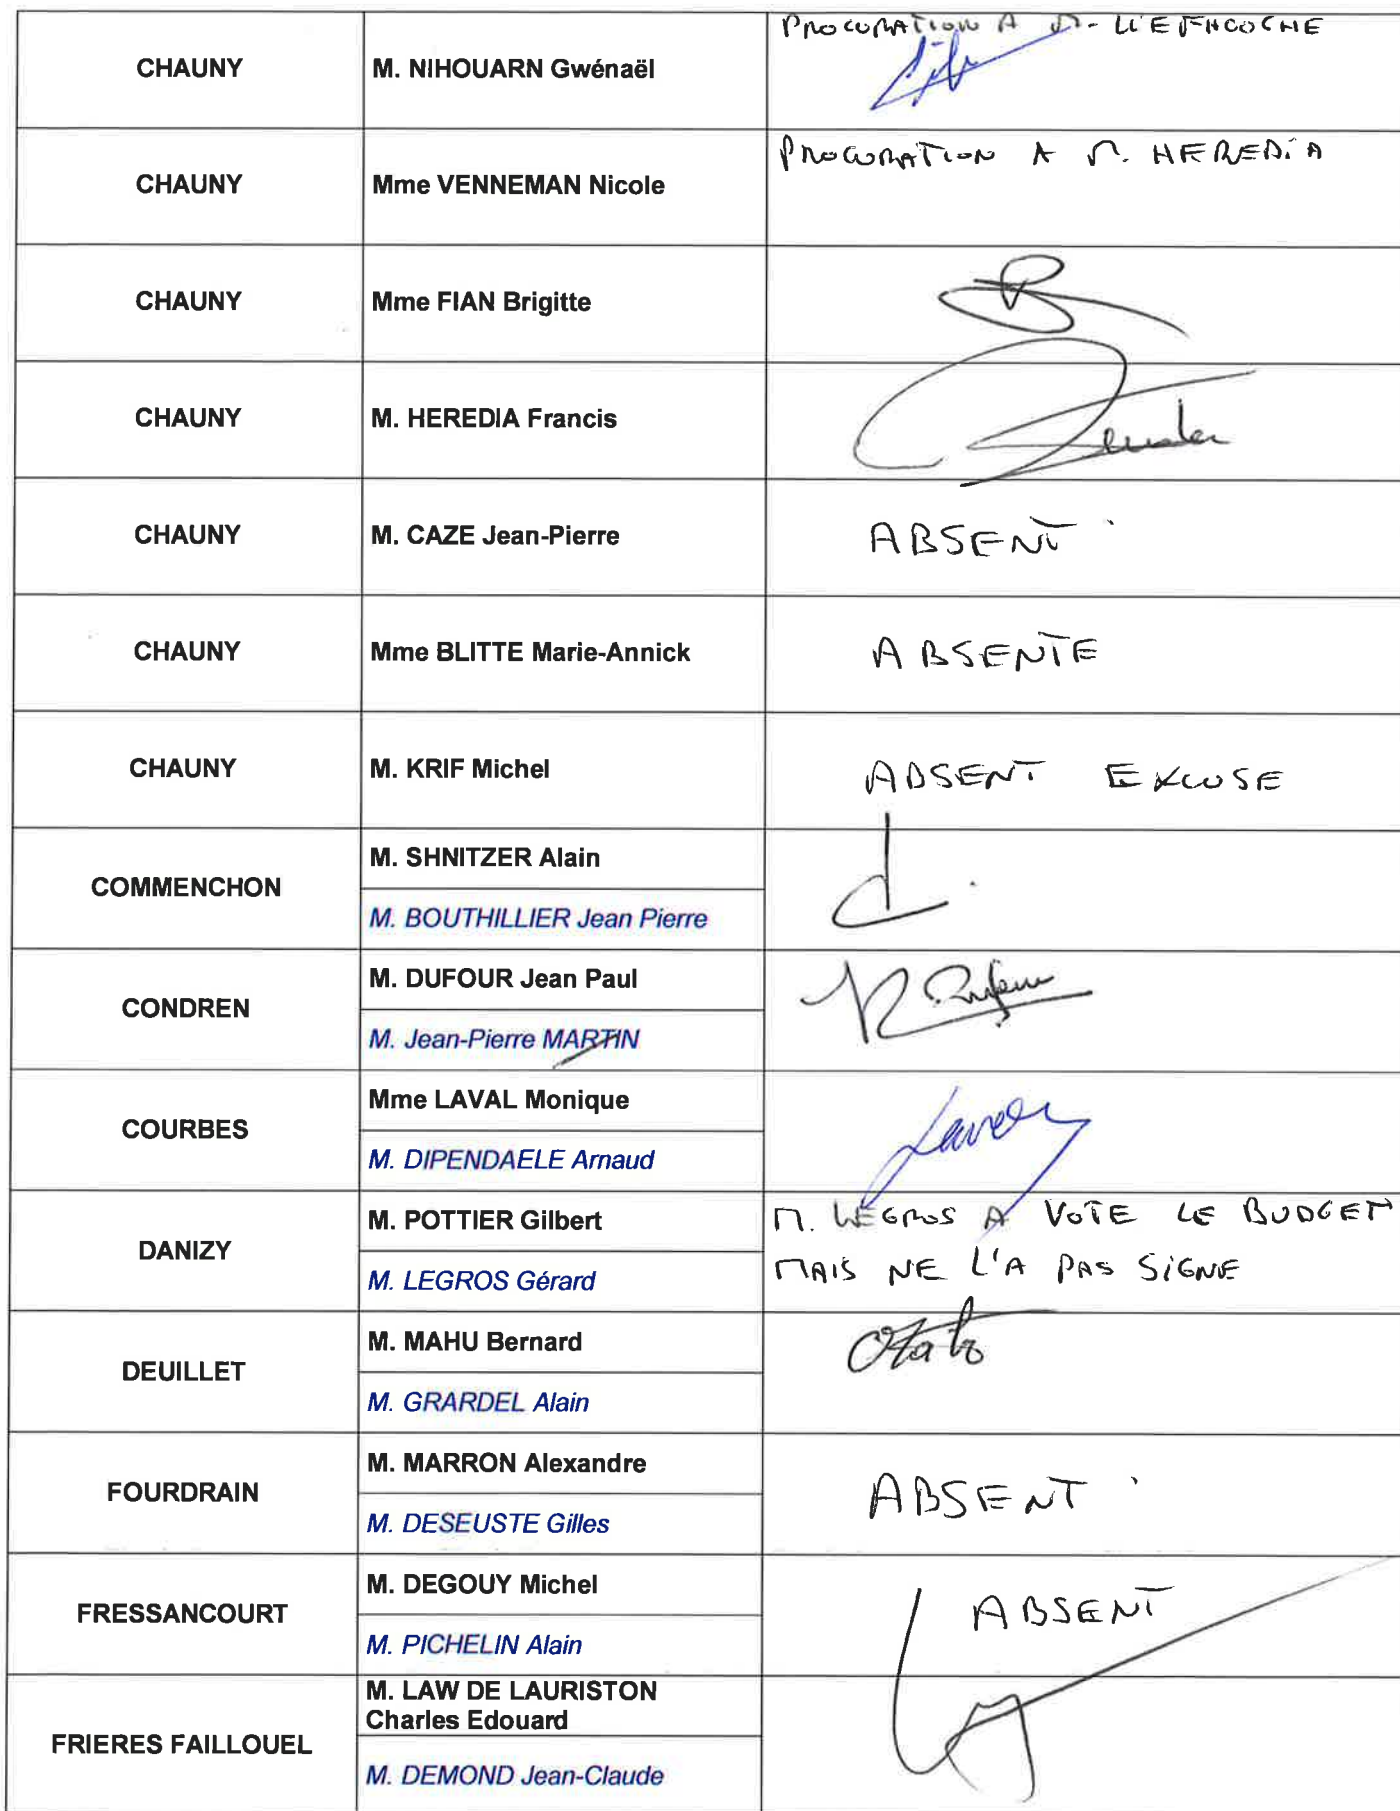 CHAUNY M. NIHOUARN Gwénaël PROCURATION A M.
CHAUNY Mme VENNEMAN Nicole PROCURATION A M. HEREDIA
CHAUNY Mme FIAN Brigitte
CHAUNY M. HEREDIA Francis
CHAUNY M. CAZE Jean-Pierre ABSENT
CHAUNY Mme BLITTE Marie-Annick ABSENTE
CHAUNY M. KRIF Michel ABSENT EXCUSE
COMMENCHON M. SHNITZER Alain
M. BOUTHILLIER Jean Pierre
CONDREN M. DUFOUR Jean Paul
M. Jean-Pierre MARTIN
COURBES Mme LAVAL Monique
M. DIPENDAELE Arnaud
DANIZY M. POTTIER Gilbert M. LEGROS A VOTE LE BUDGET
M. LEGROS Gérard MAIS NE L'A PAS SIGNE
DEUILLET M. MAHU Bernard
M. GRARDEL Alain
FOURDRAIN M. MARRON Alexandre ABSENT
M. DESEUSTE Gilles
FRESSANCOURT M. DEGOUY Michel ABSENT
M. PICHELIN Alain
FRIERES FAILLOUEL M. LAW DE LAURISTON
Charles Edouard
M. DEMOND Jean-Claude